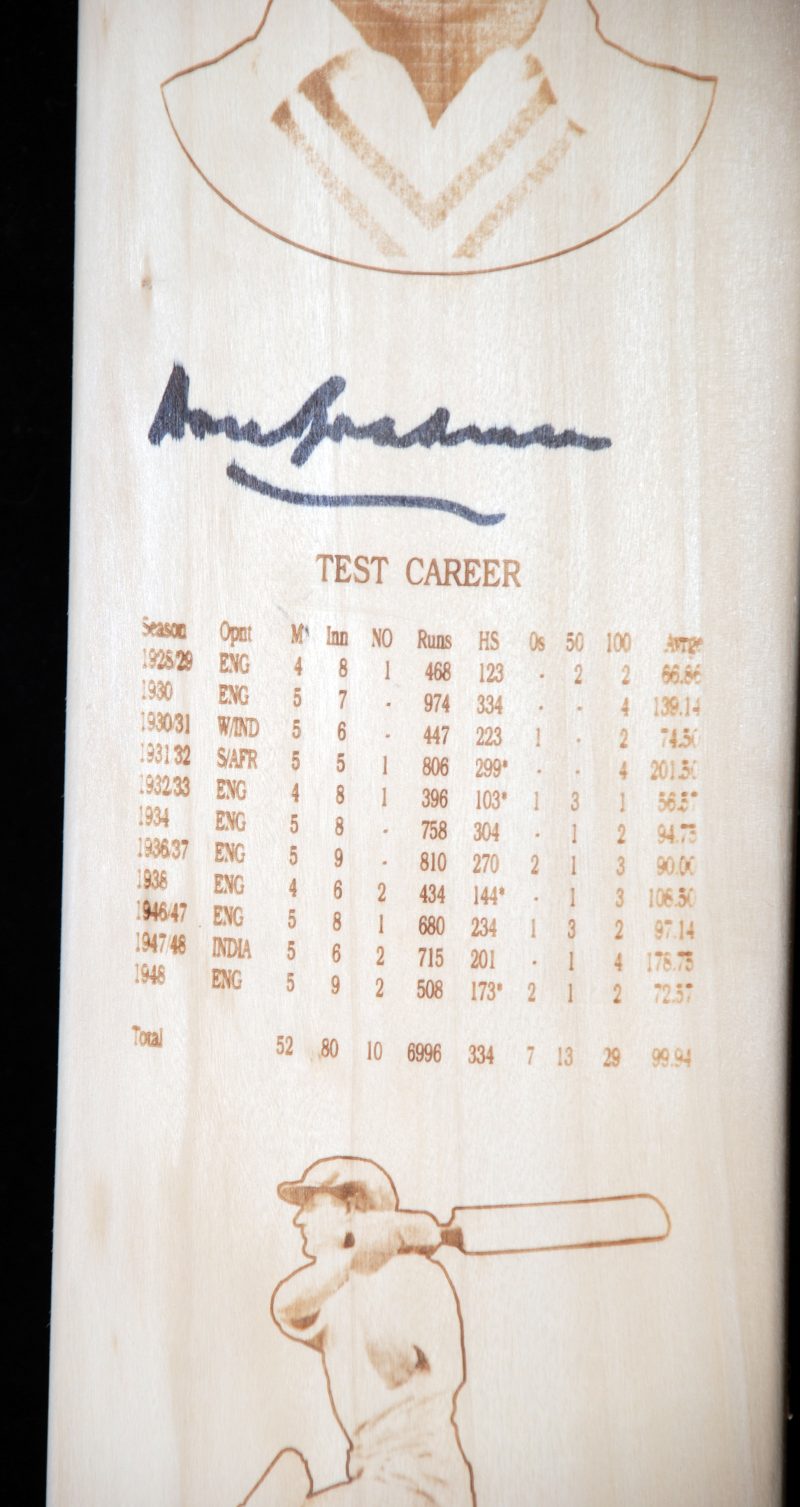 Don Bradman
TEST CAREER
Season Opnt M' Inn NO Runs HS 0s 50 100 Avrge
1928/29 ENG 4 8 1 468 123 - 2 2 66.86
1930 ENG 5 7 - 974 334 - - 4 139.14
1930/31 W/IND 5 6 - 447 223 1 - 2 74.50
1931 32 S/AFR 5 5 1 806 299* - - 4 201.50
1932/33 ENG 4 8 1 396 103* 1 3 1 56.57
1934 ENG 5 8 - 758 304 - 1 2 94.75
1936/37 ENG 5 9 - 810 270 2 1 3 90.00
1938 ENG 4 6 2 434 144* - 1 3 108.50
1946/47 ENG 5 8 1 680 234 1 3 2 97.14
1947/48 INDIA 5 6 2 715 201 - 1 4 178.75
1948 ENG 5 9 2 508 173* 2 1 2 72.57
Total 52 80 10 6996 334 7 13 29 99.94